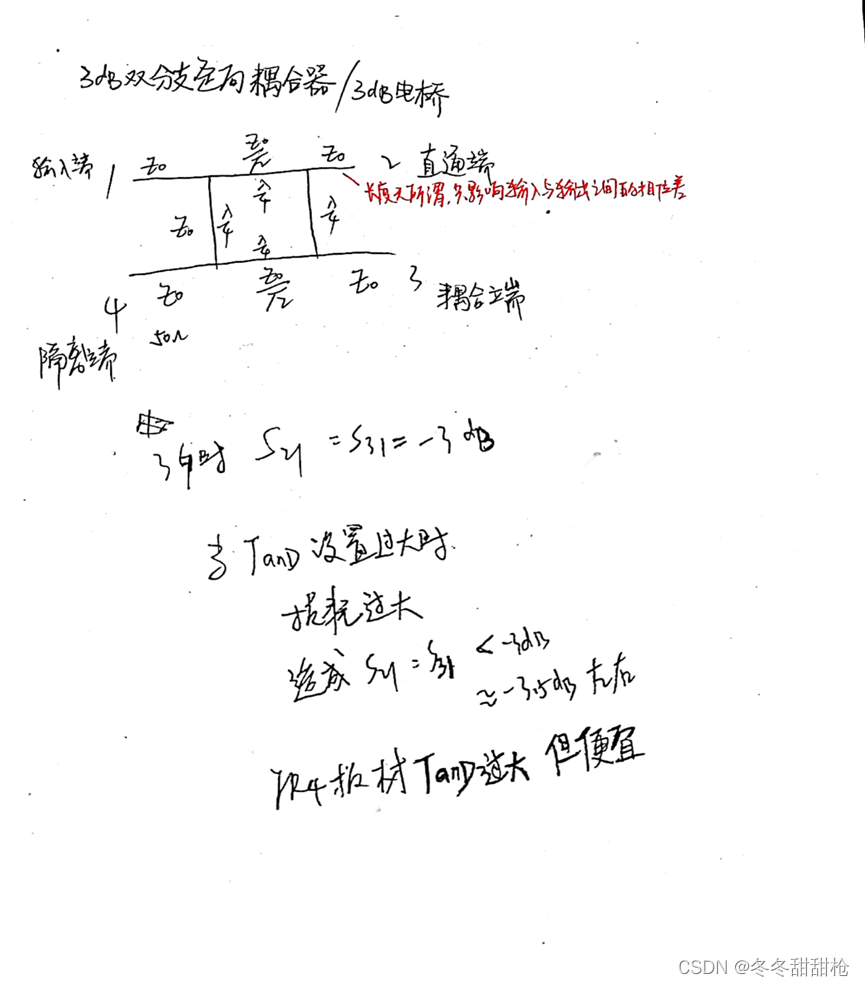 3dB双分支定向耦合器/3dB电桥
输入端 1 Z₀ Z₀/√2 Z₀ 2 直通端
长度无所谓,只影响输入与输出之间的相位差
λ/4
Z₀ λ/4 λ/4
λ/4
4 Z₀ Z₀/√2 Z₀ 3 耦合端
50Ω
隔离端
S21 = S31 = -3dB
当 TanD 设置过大时
损耗过大
造成 S21 = S31 < -3dB
≈ -3.5dB 左右
FR4板材 TanD过大 但便宜
CSDN @冬冬甜甜枪